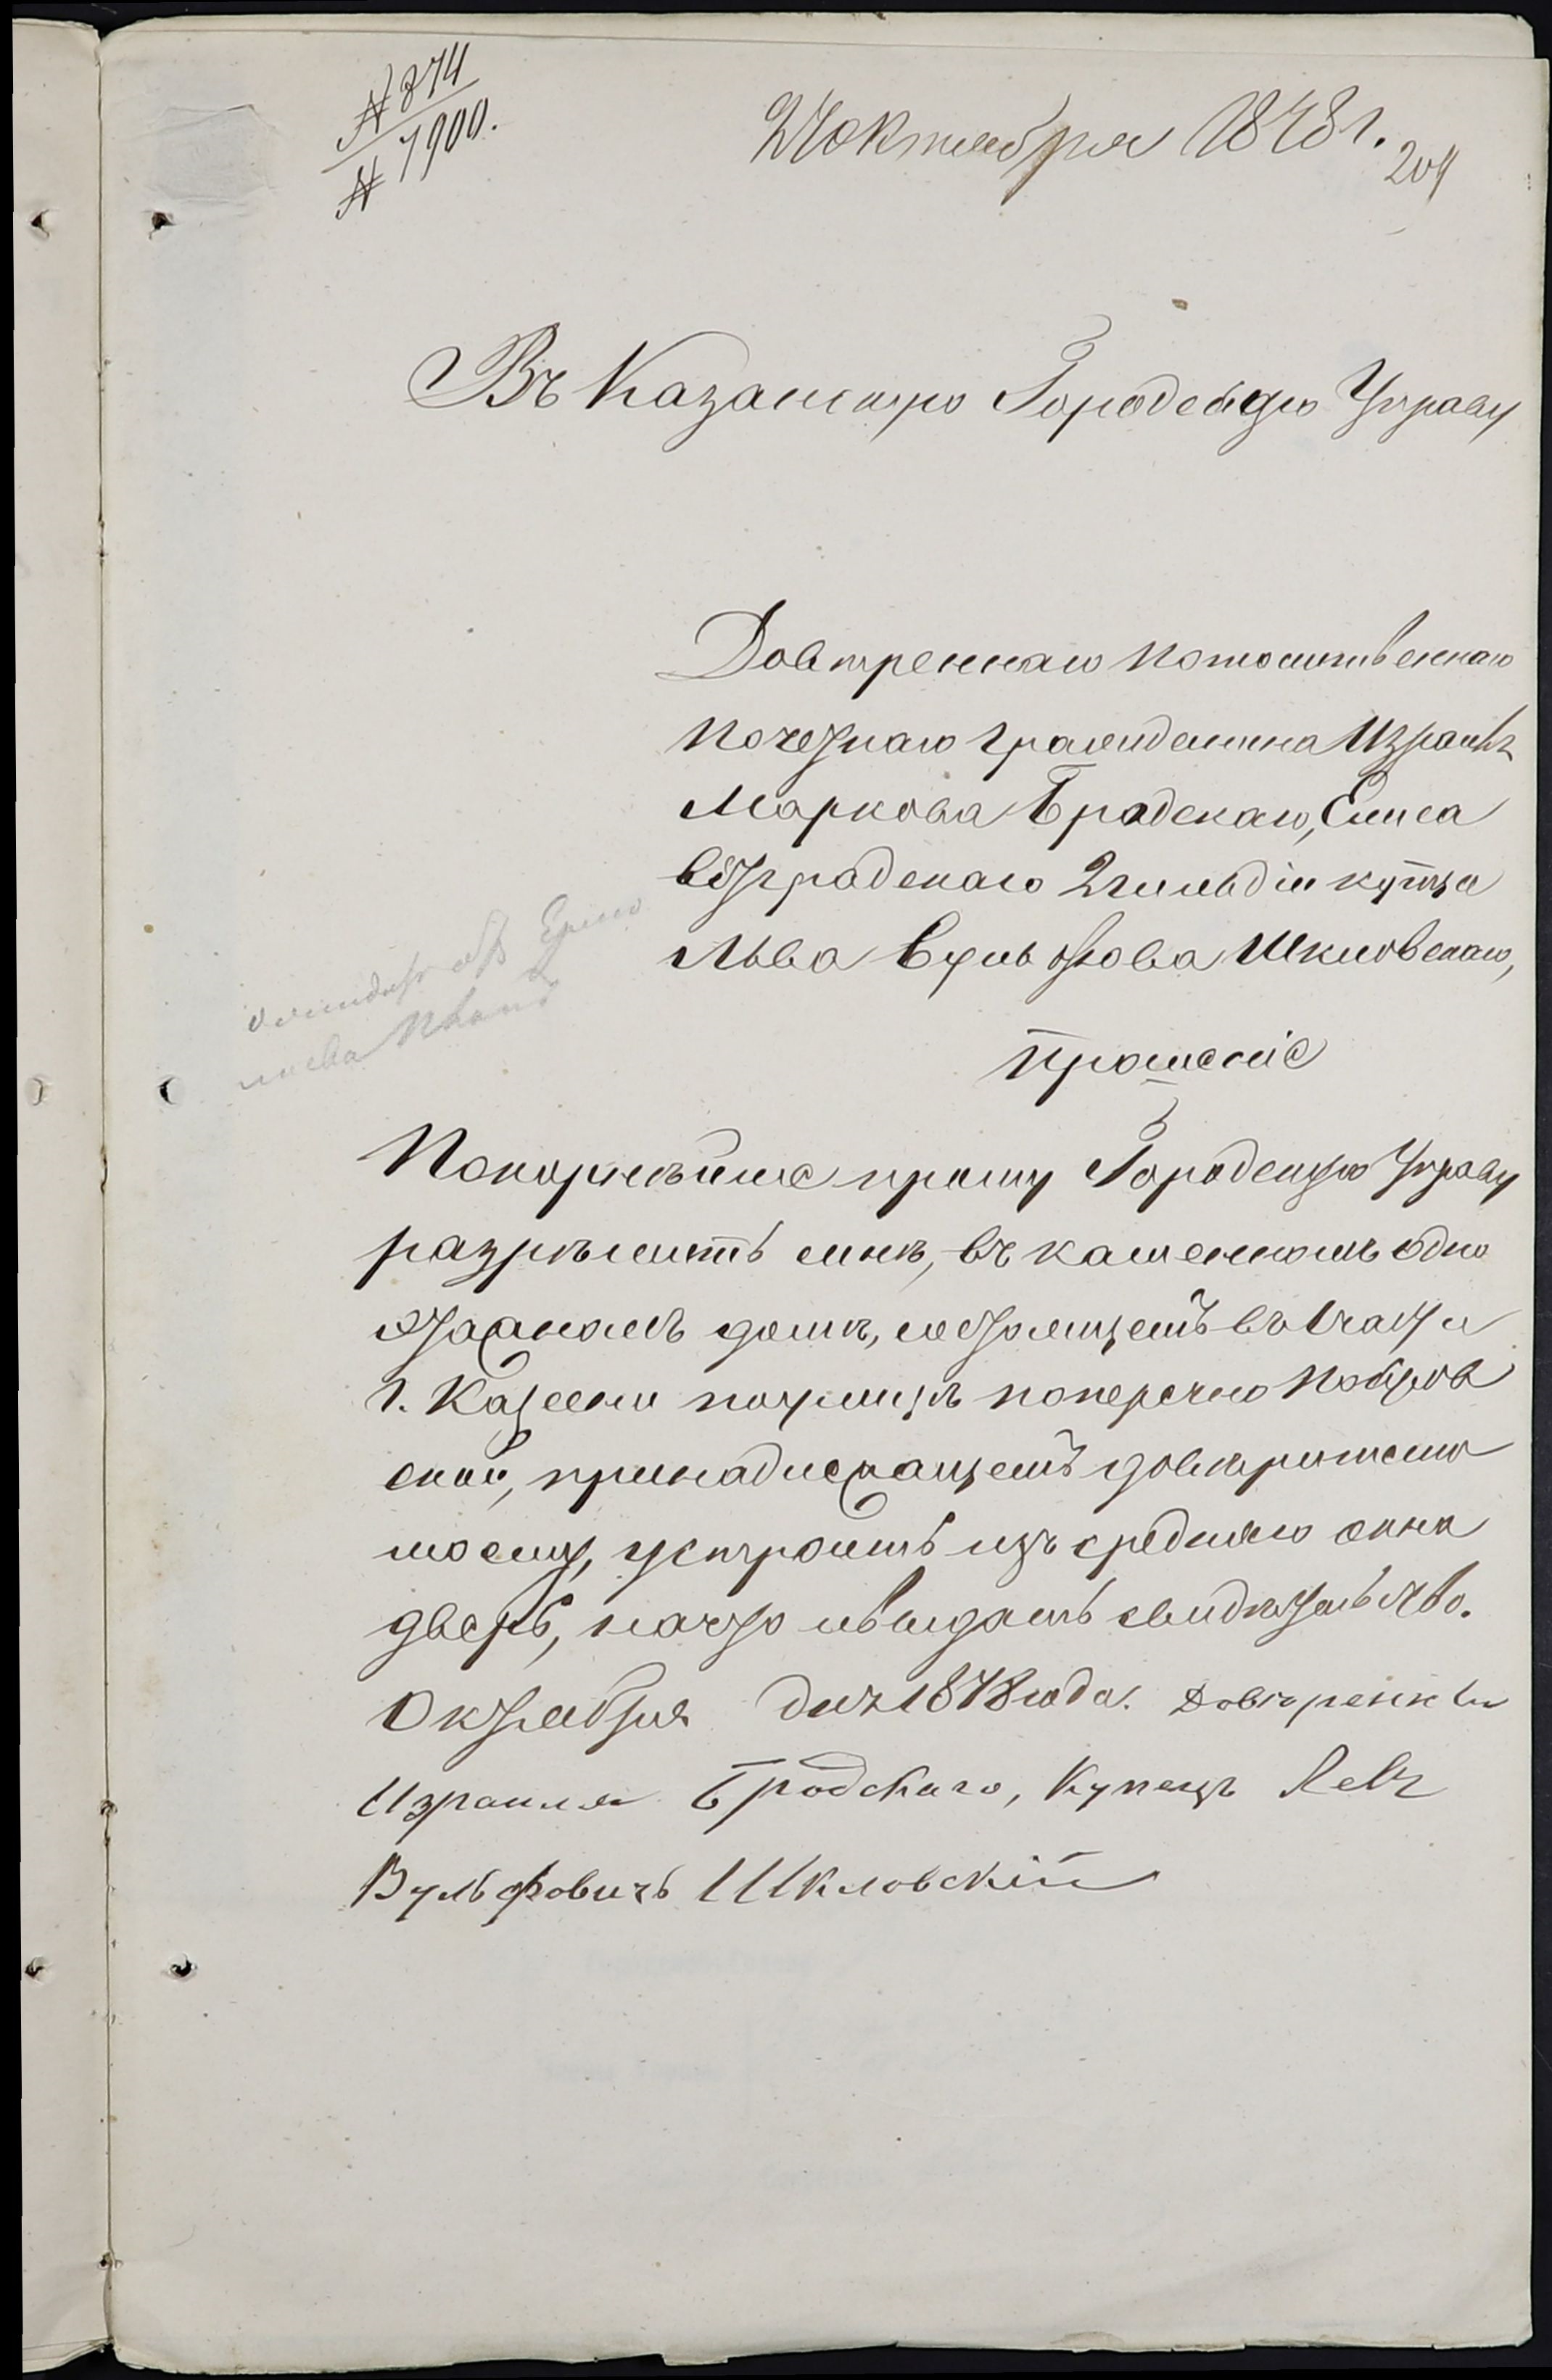 № 374
№ 7900.
24 октября 1878 г.
204
Въ Казанскую Городскую Управу
Довѣреннаго потомственнаго
почетнаго гражданина Израиля
Маркова Бродскаго, Елиса
ветградскаго 2 гильдіи купца
Льва Вульфова Шкловскаго,
прошеніе
Покорнѣйше прошу Городскую Управу
разрѣшить мнѣ, въ каменномъ одно
этажномъ домѣ, состоящемъ въ 1 части
г. Казани по улицѣ поперечно Покров
ской, принадлежащемъ довѣрителю
моему, устроить изъ средняго окна
дверь, на что и выдать свидѣтельство.
Октября дня 1878 года. Довѣренный
Израиля Бродскаго, Купецъ Левъ
Вульфовичъ Шкловскій